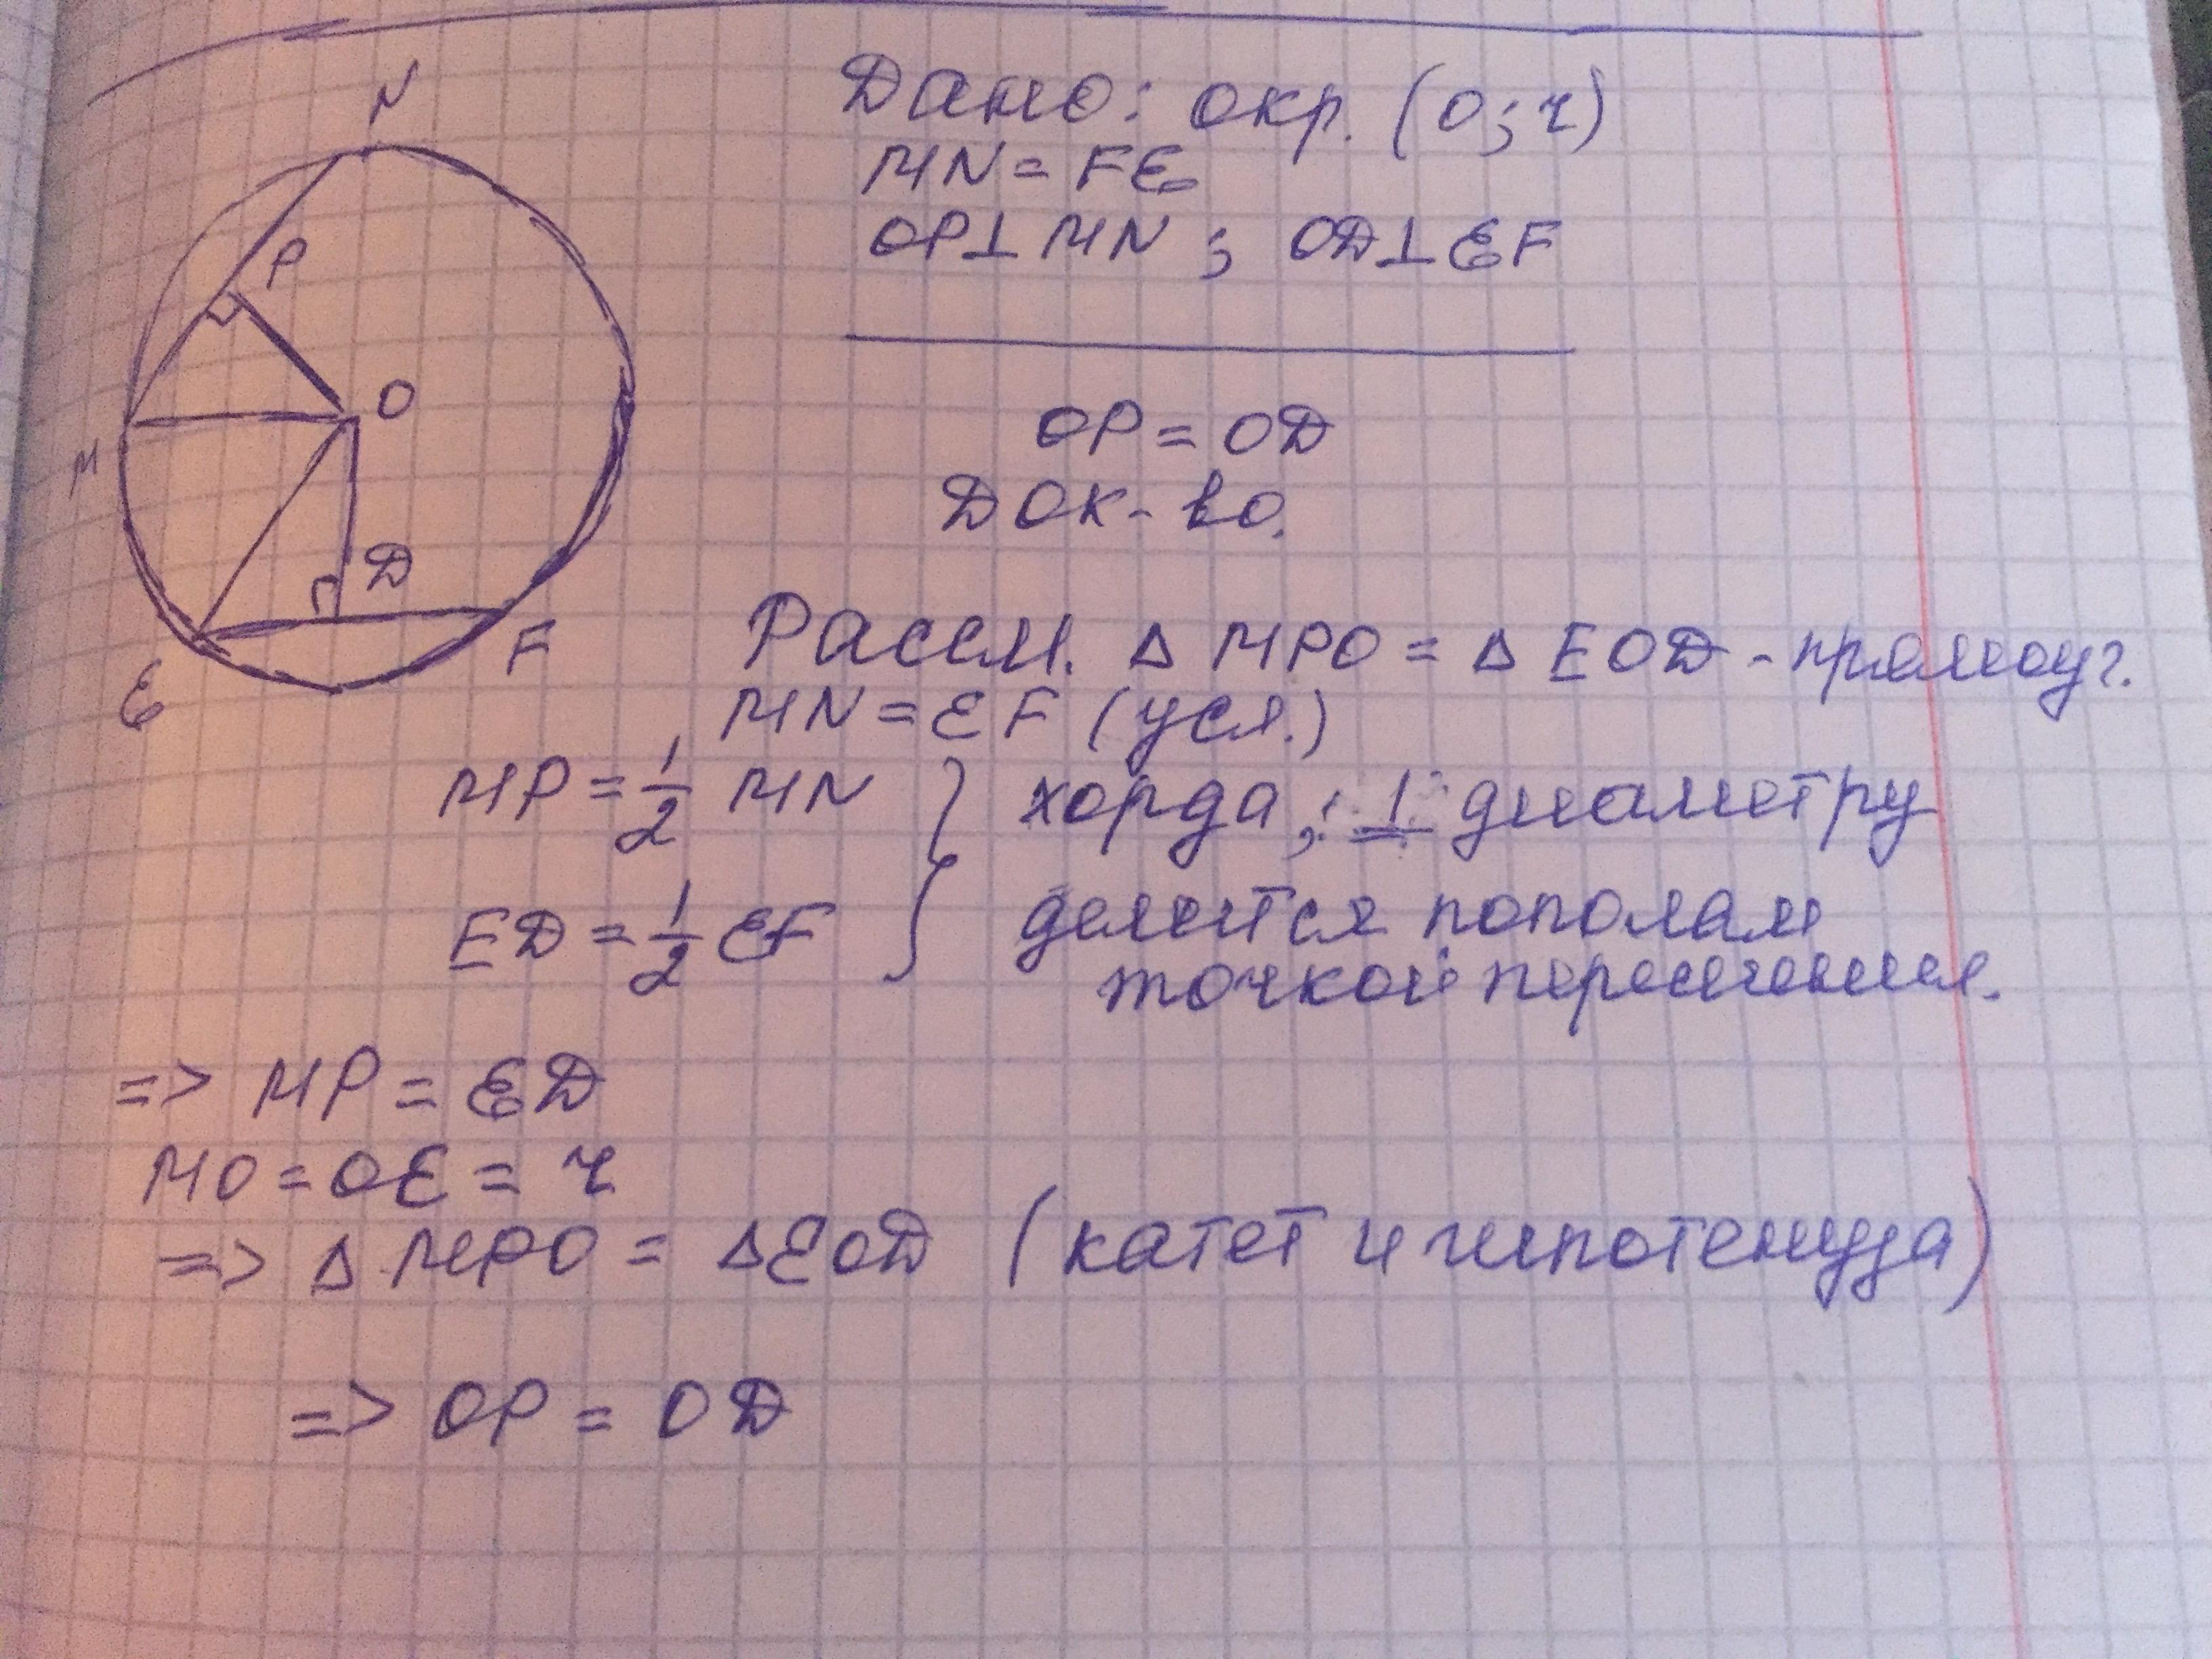 N
P
O
M
D
E
F
Дано: окр. (O; r)
MN = FE
OP⊥MN ; OD⊥EF
OP = OD
Док-во.
Рассм. Δ MPO = Δ EOD - прямоуг.
MN = EF (усл.)
MP = 1/2 MN } хорда, ⊥ диаметру
ED = 1/2 EF } делится пополам
точкой пересечения.
=> MP = ED
MO = OE = r
=> Δ MPO = ΔEOD (катет и гипотенуза)
=> OP = OD